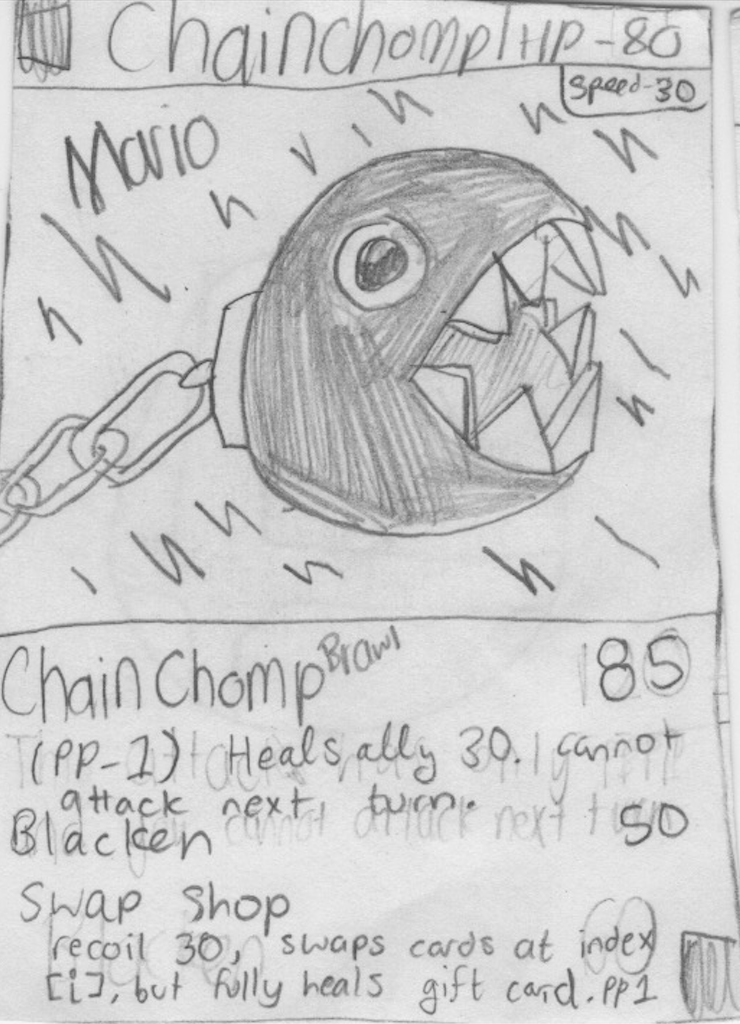 Chainchomp HP-80
Speed-30
Mario
Chain Chomp Brawl 85
(PP-1) Heals ally 30. I cannot
attack next turn.
Blacken 50
Swap Shop
recoil 30, swaps cards at index
[i], but fully heals gift card. PP1